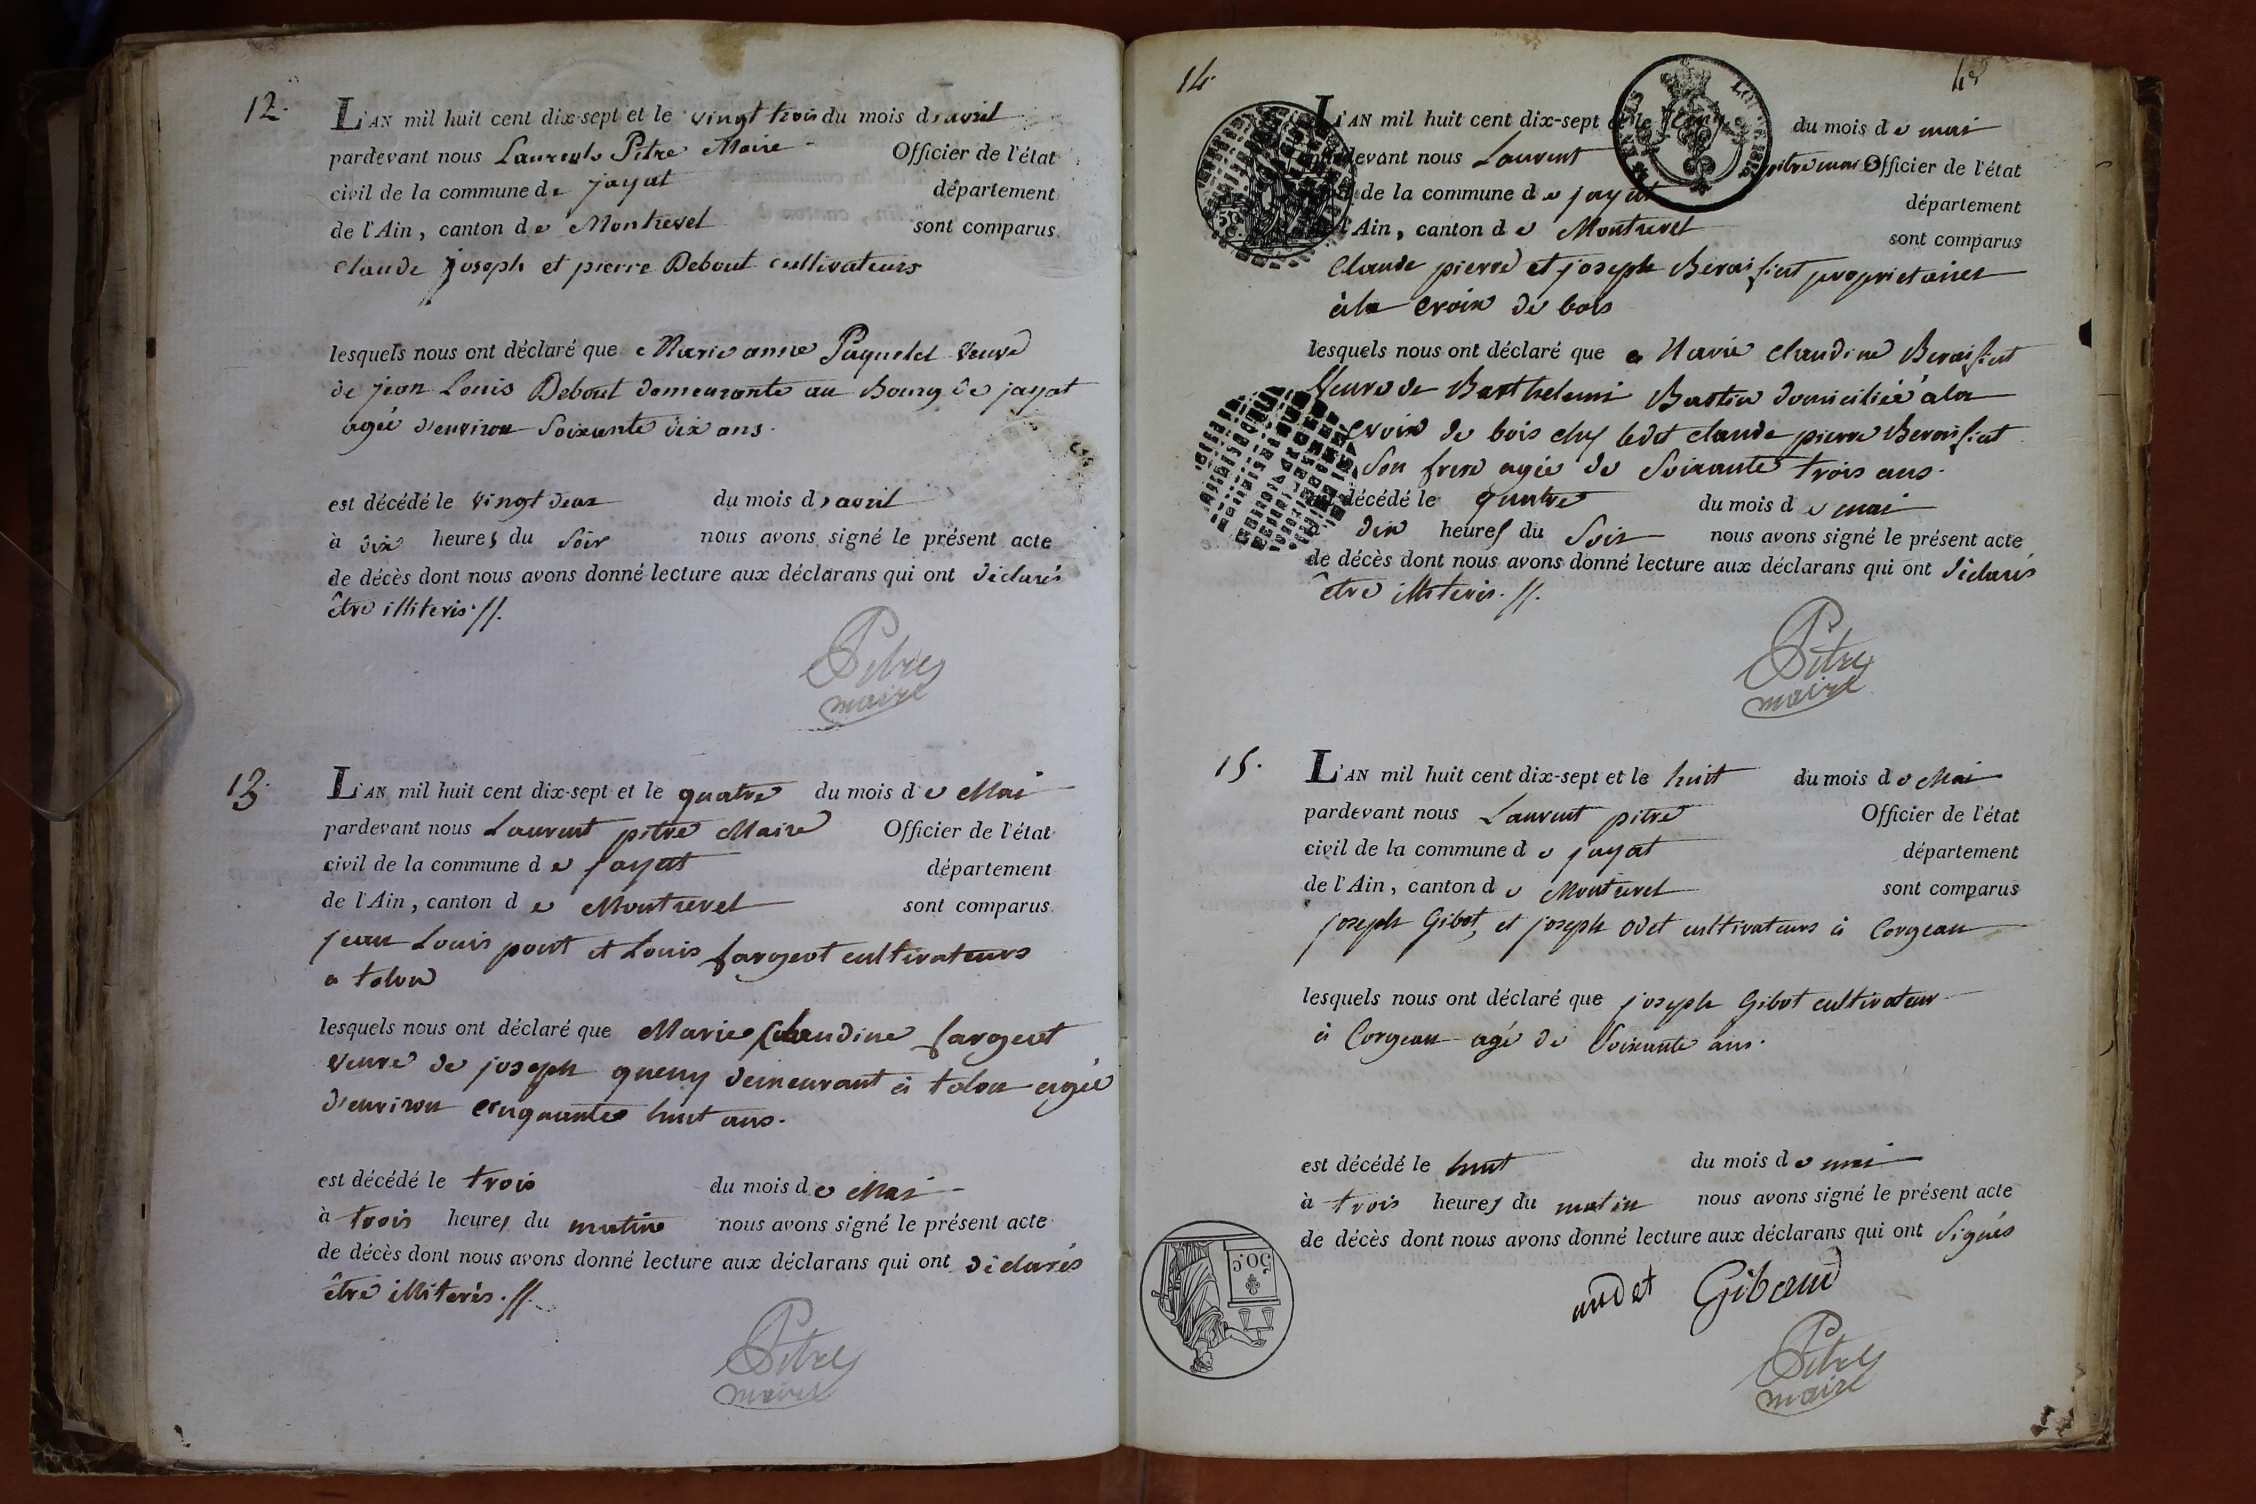 12.
L'AN mil huit cent dix-sept et le vingt trois du mois d'avril
pardevant nous Laurent Pitre Maire Officier de l'état
civil de la commune de jayat département
de l'Ain, canton de Montrevel sont comparus
Claude joseph et pierre Debout cultivateurs
lesquels nous ont déclaré que Marie anne Paquelet veuve
de jean Louis Debout demeurante au Bourg de jayat
agée d'environ Soixante dix ans.
est décédé le vingt deux du mois d'avril
à dix heures du Soir nous avons signé le présent acte
de décès dont nous avons donné lecture aux déclarans qui ont déclarés
être illiterés.//.
Pitre
maire
13.
L'AN mil huit cent dix-sept et le quatre du mois de Mai
pardevant nous Laurent pitre Maire Officier de l'état
civil de la commune de jayat département
de l'Ain, canton de Montrevel sont comparus
jean Louis pont et Louis fargeot cultivateurs
a tolon
lesquels nous ont déclaré que Marie Claudine fargeot
veuve de joseph queny demeurant à tolon agée
d'environ cinquante huit ans.
est décédé le trois du mois de Mai
à trois heures du matin nous avons signé le présent acte
de décès dont nous avons donné lecture aux déclarans qui ont déclarés
être illiterés.//.
Pitre
maire
14. 48
L'AN mil huit cent dix-sept et le du mois de mai
pardevant nous Laurent pitre maire Officier de l'état
de la commune de jayat département
l'Ain, canton de Montrevel sont comparus
Claude pierre et joseph Beraissiat proprietaires
à la Croix de bois
lesquels nous ont déclaré que Marie Claudine Beraissiat
Veuve de Barthelemi Bastin domiciliée à la
croix de bois chez ledit claude pierre Beraissiat
Son frere agée de Soixante trois ans.
décédé le quatre du mois de mai
dix heures du Soir nous avons signé le présent acte
de décès dont nous avons donné lecture aux déclarans qui ont déclarés
être illiterés.//.
Pitre
maire
15.
L'AN mil huit cent dix-sept et le huit du mois de Mai
pardevant nous Laurent pitre Officier de l'état
civil de la commune de jayat département
de l'Ain, canton de Montrevel sont comparus
joseph Gibot, et joseph odet cultivateurs à Corgeau
lesquels nous ont déclaré que joseph Gibot cultivateur
à Corgeau agé de Soixante ans.
est décédé le huit du mois de mai
à trois heures du matin nous avons signé le présent acte
de décès dont nous avons donné lecture aux déclarans qui ont Signés
audet Gibaud
50.c
Pitre
maire